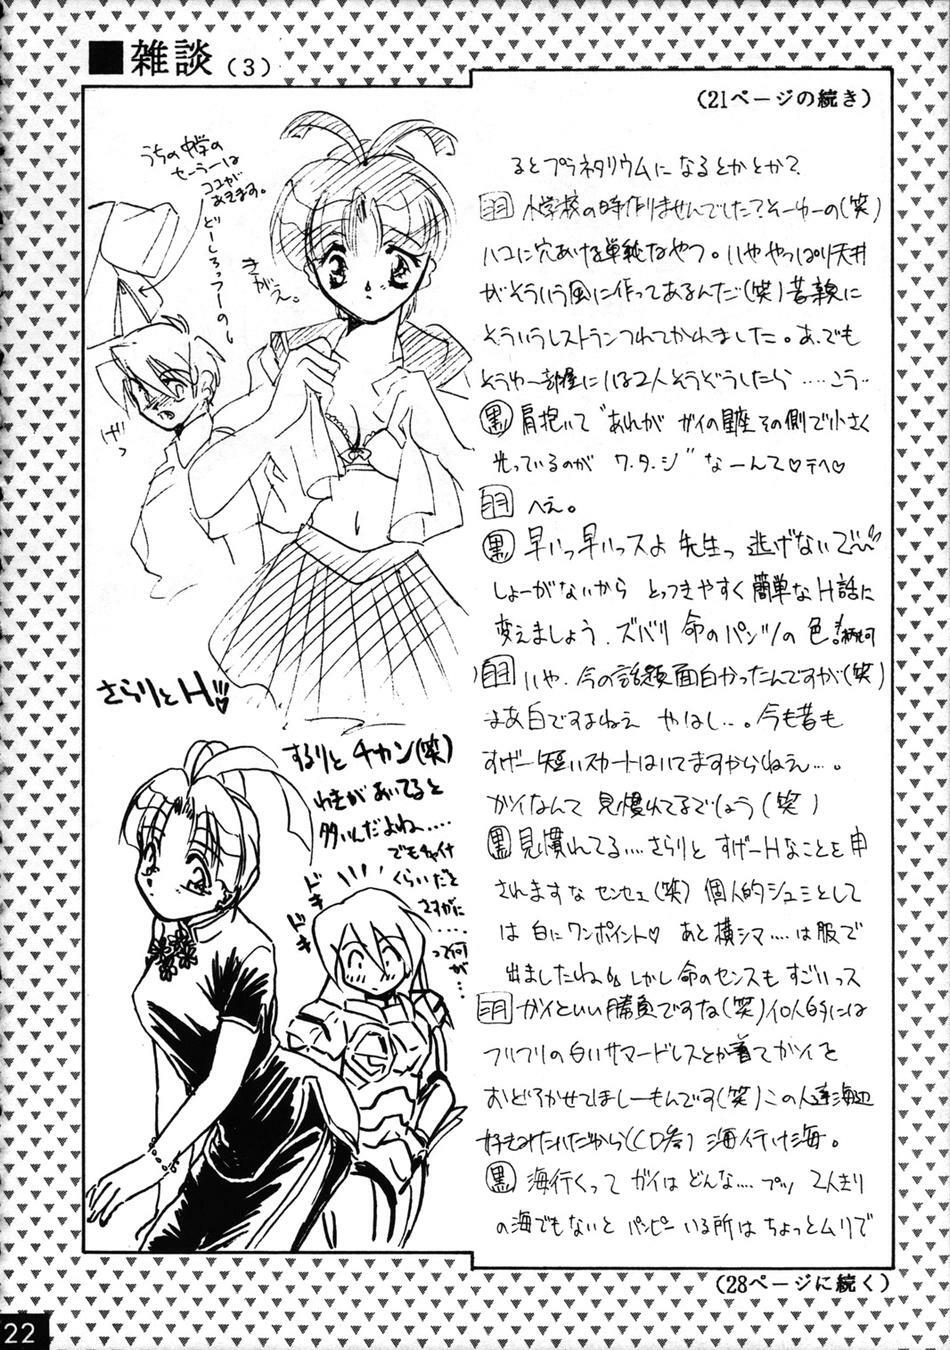 ■雑談(3)
(21ページの続き)
るとプラネタリウムになるとかとか?
小学校の時作りませんでした?そーゆーの(笑)
ハコに穴あける単純なやつ。いややっぱり天井
がそういう風に作ってあるんだ(笑)昔親に
そういうレストランつれてかれました。あ、でも
そうゆー部屋にいる2人そうぞうしたら……こう‥
黒 肩抱いて"あれが ガイの星座その側で小さく
光っているのが ワ・タ・シ"なーんて♡テヘ♡
へえ。
黒 早いっ早いっスよ 先生っ 逃げないで
しょーがないから とっつきやすく簡単なH話に
変えましょう、ズバリ 命のパンツの色!
いや、今の話題面白かったんですが(笑)
まあ白ですよねえ やはし‥。今も昔も
すげー短いスカートはいてますからねえ…。
ガイなんて 見慣れてるでしょう(笑)
黒 見慣れてる…さらりと すげーHなことを申
されますな センセェ(笑) 個人的シュミとして
は 白にワンポイント♡ あと横シマ‥‥は服で
出ましたね しかし命のセンスも すごいっス
ガイといい勝負ですな(笑)個人的には
フリフリの白いサマードレスとか着てガイを
おどろかせてほしーもんです(笑)この人達海辺
好きみたいだから(CD参) 海行け海。
黒 海行くって ガイは どんな‥‥プッ 2人きり
の海でもないと パンピー いる所は ちょっとムリで
(28ページに続く)
うちの中学の
セーラーは
ココが
あきます。
どーしろっつーのー
きがえ。
げっ
さらりとH♡
するりと チカン(笑)
わきが あいてると
多いんだよね‥‥
でもチャイナ
くらいだと
さすがに
‥‥
って何
が…
ドキ
ドキ
22